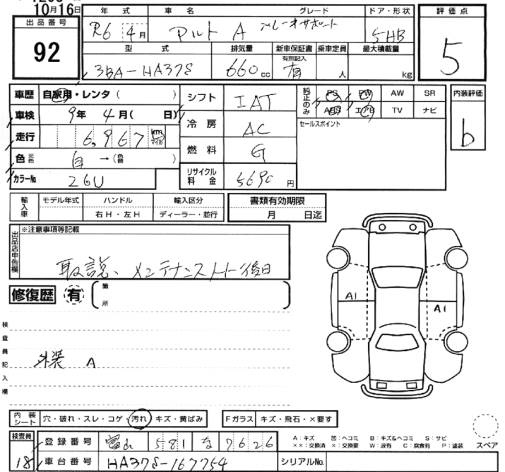 10月16日
出品番号 92
年式 R6 4月
車名 アルト A
グレード
ドア・形状 5HB
評価点 5
型式 3BA-HA37S
排気量 660cc
新車保証書 有別記入 有
乗車定員 人
最大積載量 kg
車歴 自家用・レンタ( )
車検 9年 4月( 日)
走行 6,967 km マイル
色 元色 白→(色替 )
カラーNo 26U
シフト IAT
冷房 AC
燃料 G
リサイクル料金 円
純正のみ PS PW AW SR
ABS エアB TV ナビ
セールスポイント
内装評価 b
輸入車 モデル年式 ハンドル 右H・左H 輸入区分 ディーラー・並行
書類有効期限 月 日迄
出品店申告欄 ※注意事項等記載
取説、メンテナンスノート後日
修復歴 有 ( 箇所 )
検査員記入欄
外装 A
A1 A1
内装シート 穴・破れ・スレ・コゲ・汚れ・キズ・黄ばみ
Fガラス キズ・飛石・×要す
スペア
検査員 18
登録番号 581 な 7626
車台番号 HA37S-167754
シリアルNo.
A:キズ 凹:ヘコミ B:キズ&ヘコミ S:サビ
××:交換済 ×:要交換 W:波有 C:腐食有 P:塗装 ハ:凹大